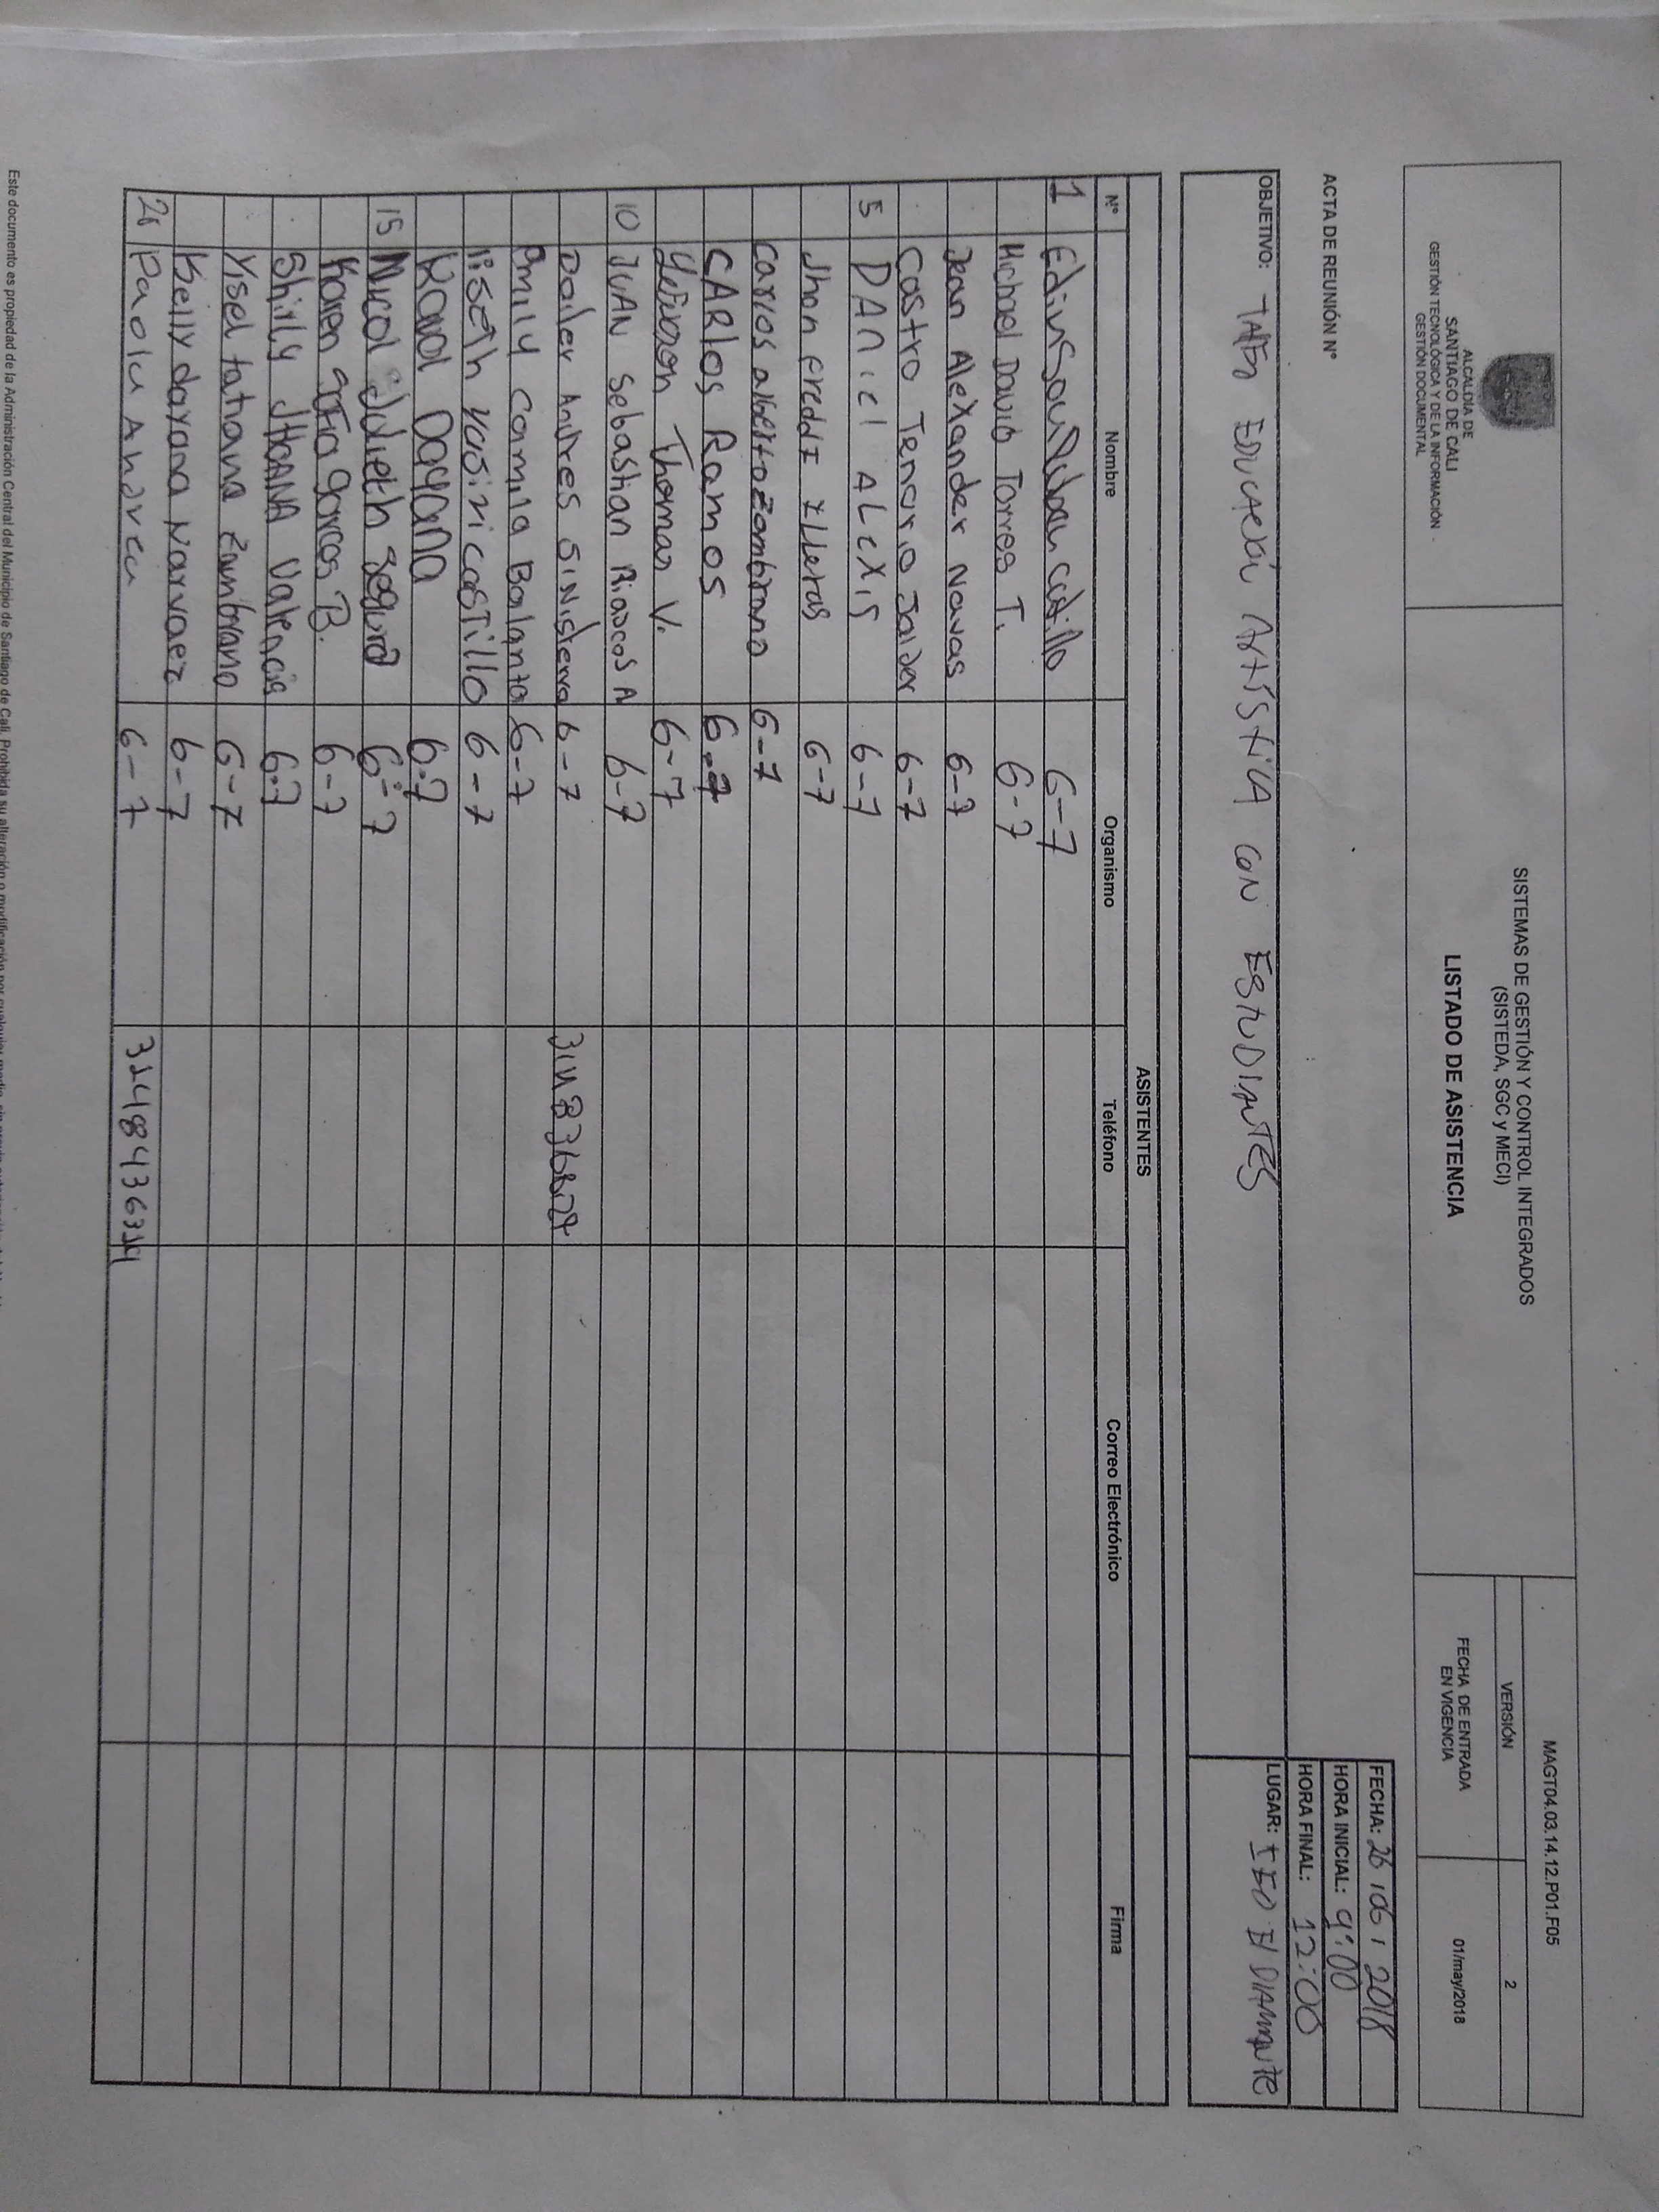 ALCALDÍA DE
SANTIAGO DE CALI
GESTIÓN TECNOLÓGICA Y DE LA INFORMACIÓN
GESTIÓN DOCUMENTAL
SISTEMAS DE GESTIÓN Y CONTROL INTEGRADOS
(SISTEDA, SGC y MECI)
LISTADO DE ASISTENCIA
MAGT04.03.14.12.P01.F05
VERSIÓN 2
FECHA DE ENTRADA
EN VIGENCIA
01/may/2018
ACTA DE REUNIÓN N°
FECHA: 26 / 06 / 2018
HORA INICIAL: 9:00
HORA FINAL: 12:00
OBJETIVO: EDUCACIÓN ARTÍSTICA CON ESTUDIANTES
LUGAR: IEO El DIAMANTE
ASISTENTES
N° Nombre Organismo Teléfono Correo Electrónico Firma
1 Edinson Castillo 6-7
Michael David Torres T. 6-7
Jean Alexander Navas 6-7
Castro Tenorio Jaider 6-7
5 DANiel ALeXIS 6-7
Jhon FreddI ILLeras 6-7
carlos alberto zambrano 6-7
CARlos Ramos 6-7
Thomas V. 6-7
10 JUAN Sebastian Riascos A 6-7
Dailer Andres SINisterra 6-7
emily camila Balanta 6-7
liseth yasiri casTillo 6-7
Karol Dayana 6-7
15 Nicol Julieth Segura 6-7
Karen Sofia Garces B. 6-7
Shirly JHOANA Valencia 6-7
Yisel tatiana Zambrano 6-7
Kelly dayana Narvaez 6-7
20 Paola Andrea 6-7
Este documento es propiedad de la Administración Central del Municipio de Santiago de Cali. Prohibida su alteración o modificación por cualquier medio, sin previa